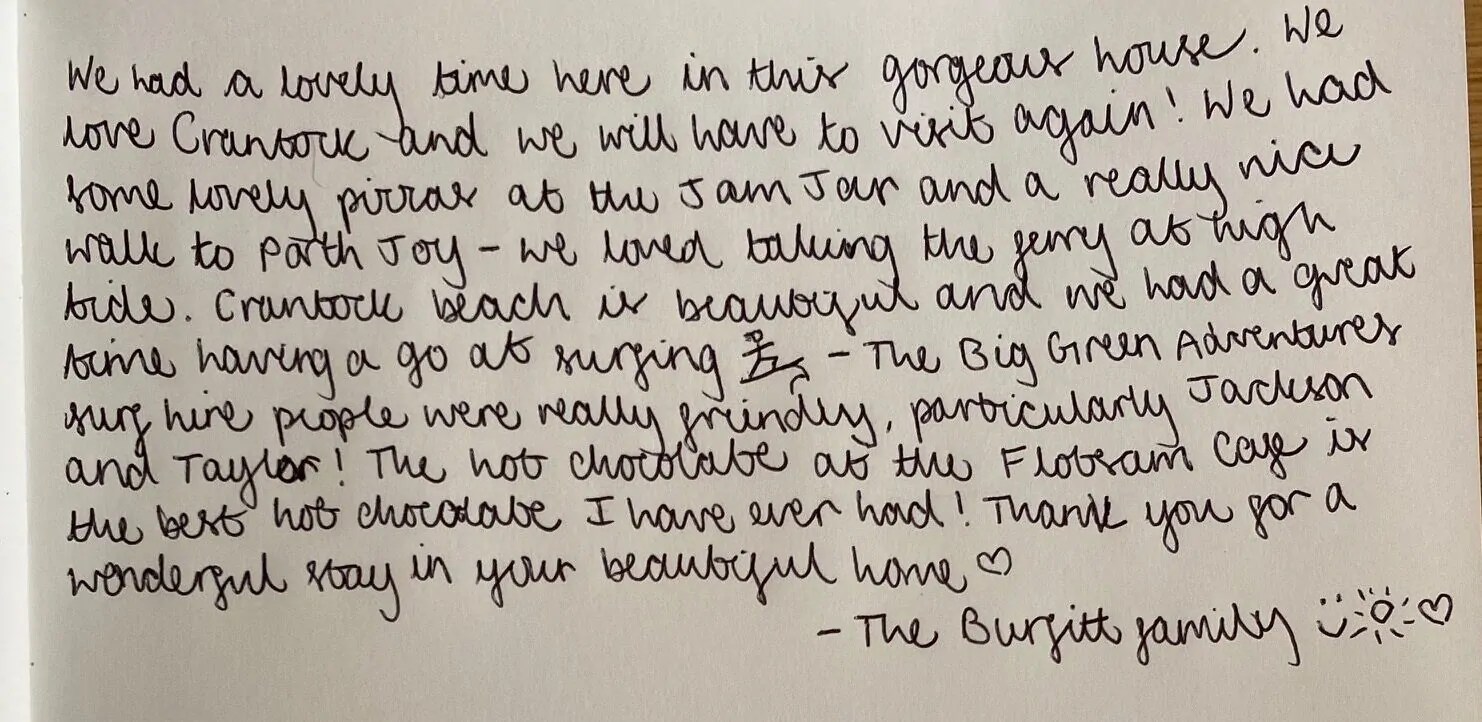 We had a lovely time here in this gorgeous house. We
love Crantock and we will have to visit again! We had
some lovely pizzas at the Jam Jar and a really nice
walk to Porth Joy - we loved taking the ferry at high
tide. Crantock beach is beautiful and we had a great
time having a go at surfing - The Big Green Adventures
surf hire people were really friendly, particularly Jackson
and Taylor! The hot chocolate at the Flotsam Cafe is
the best hot chocolate I have ever had! Thank you for a
wonderful stay in your beautiful home ♡
- The Burfitt family ♡